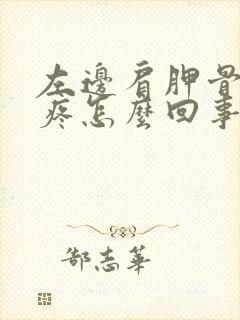 左邊肩胛骨
疼怎麼回事
郜志華